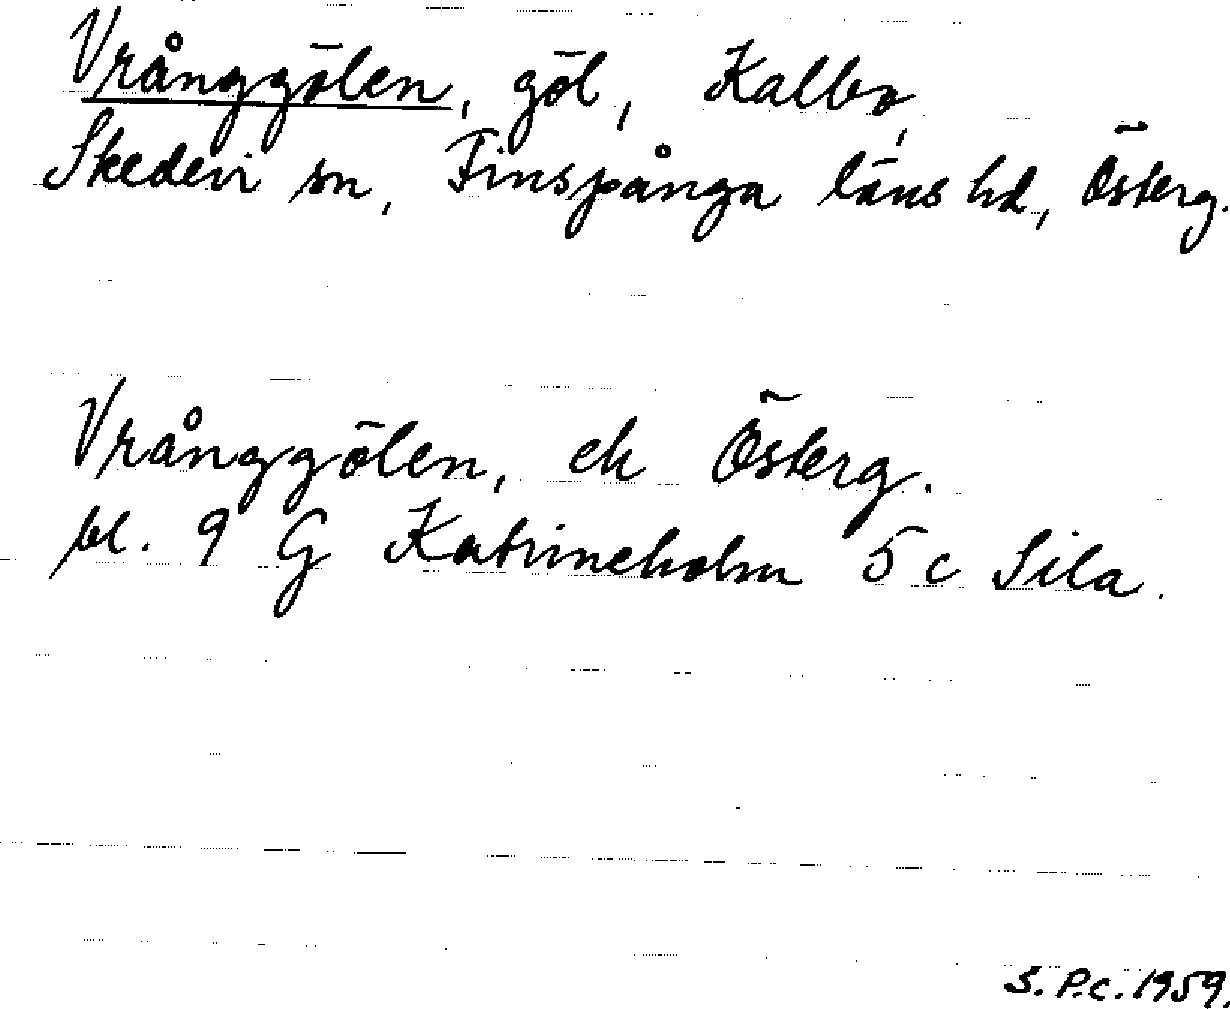 Vrånggölen, göl, Kalbo,
Skedevi sn, Finspånga läns hd, Österg.
Vrånggölen, ek Österg.
bl. 9 G Katrineholm 5 c Sila.
S. P.c. 1959.